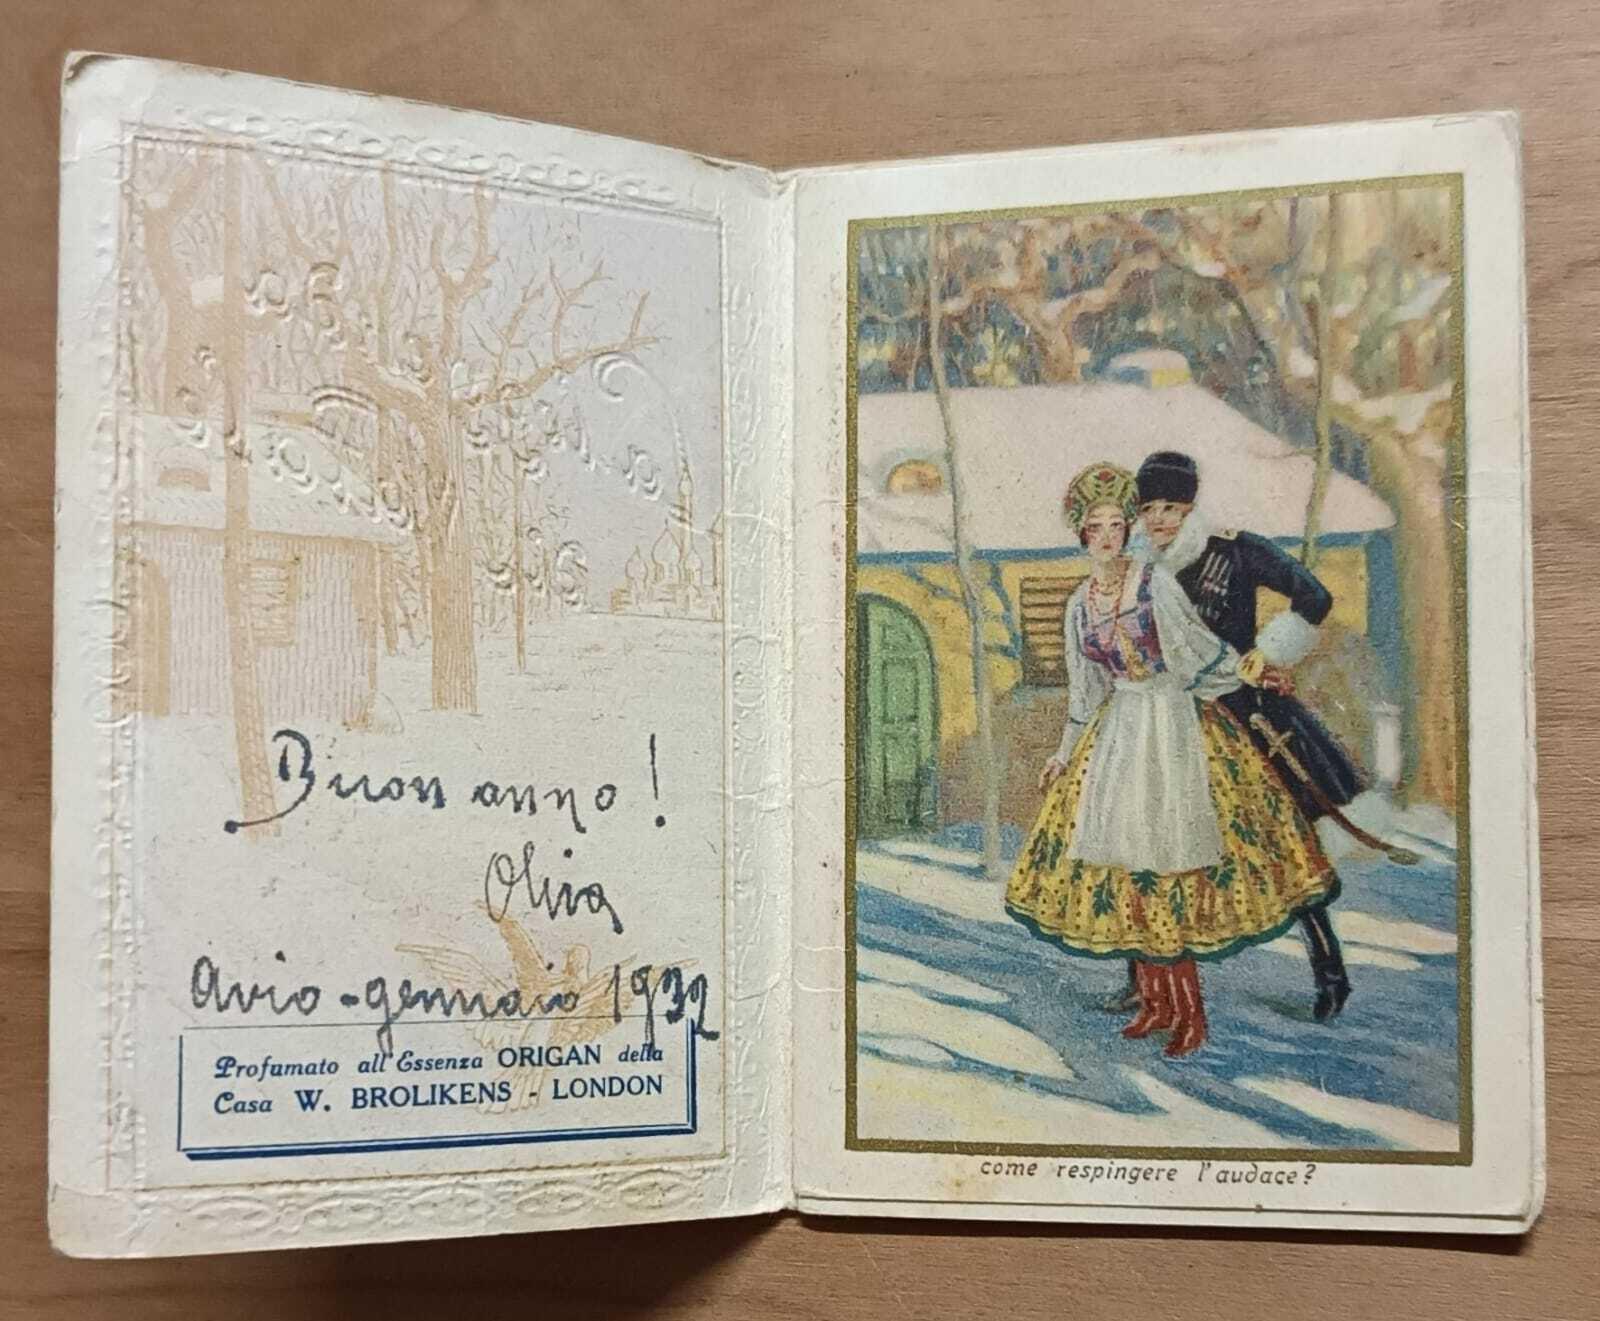 Buon anno!
Oliva
Avio - gennaio 1932
Profumato all'Essenza ORIGAN della
Casa W. BROLIKENS - LONDON
come respingere l'audace?